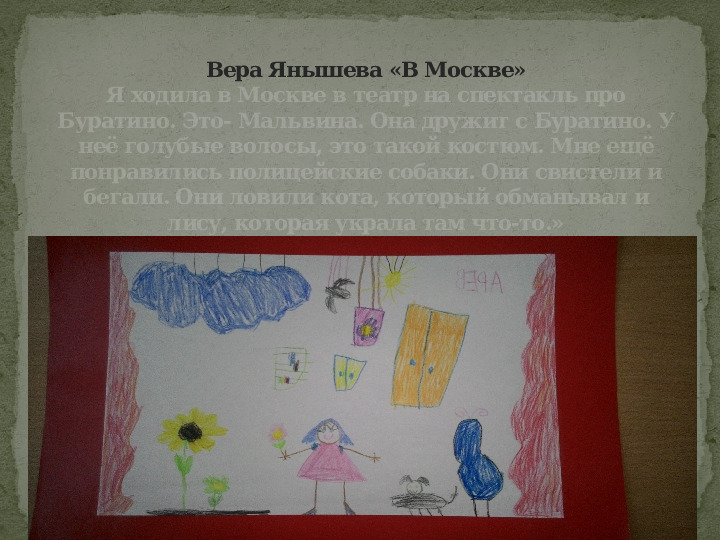 Вера Янышева «В Москве»
Я ходила в Москве в театр на спектакль про
Буратино. Это- Мальвина. Она дружит с Буратино. У
неё голубые волосы, это такой костюм. Мне ещё
понравились полицейские собаки. Они свистели и
бегали. Они ловили кота, который обманывал и
лису, которая украла там что-то.»